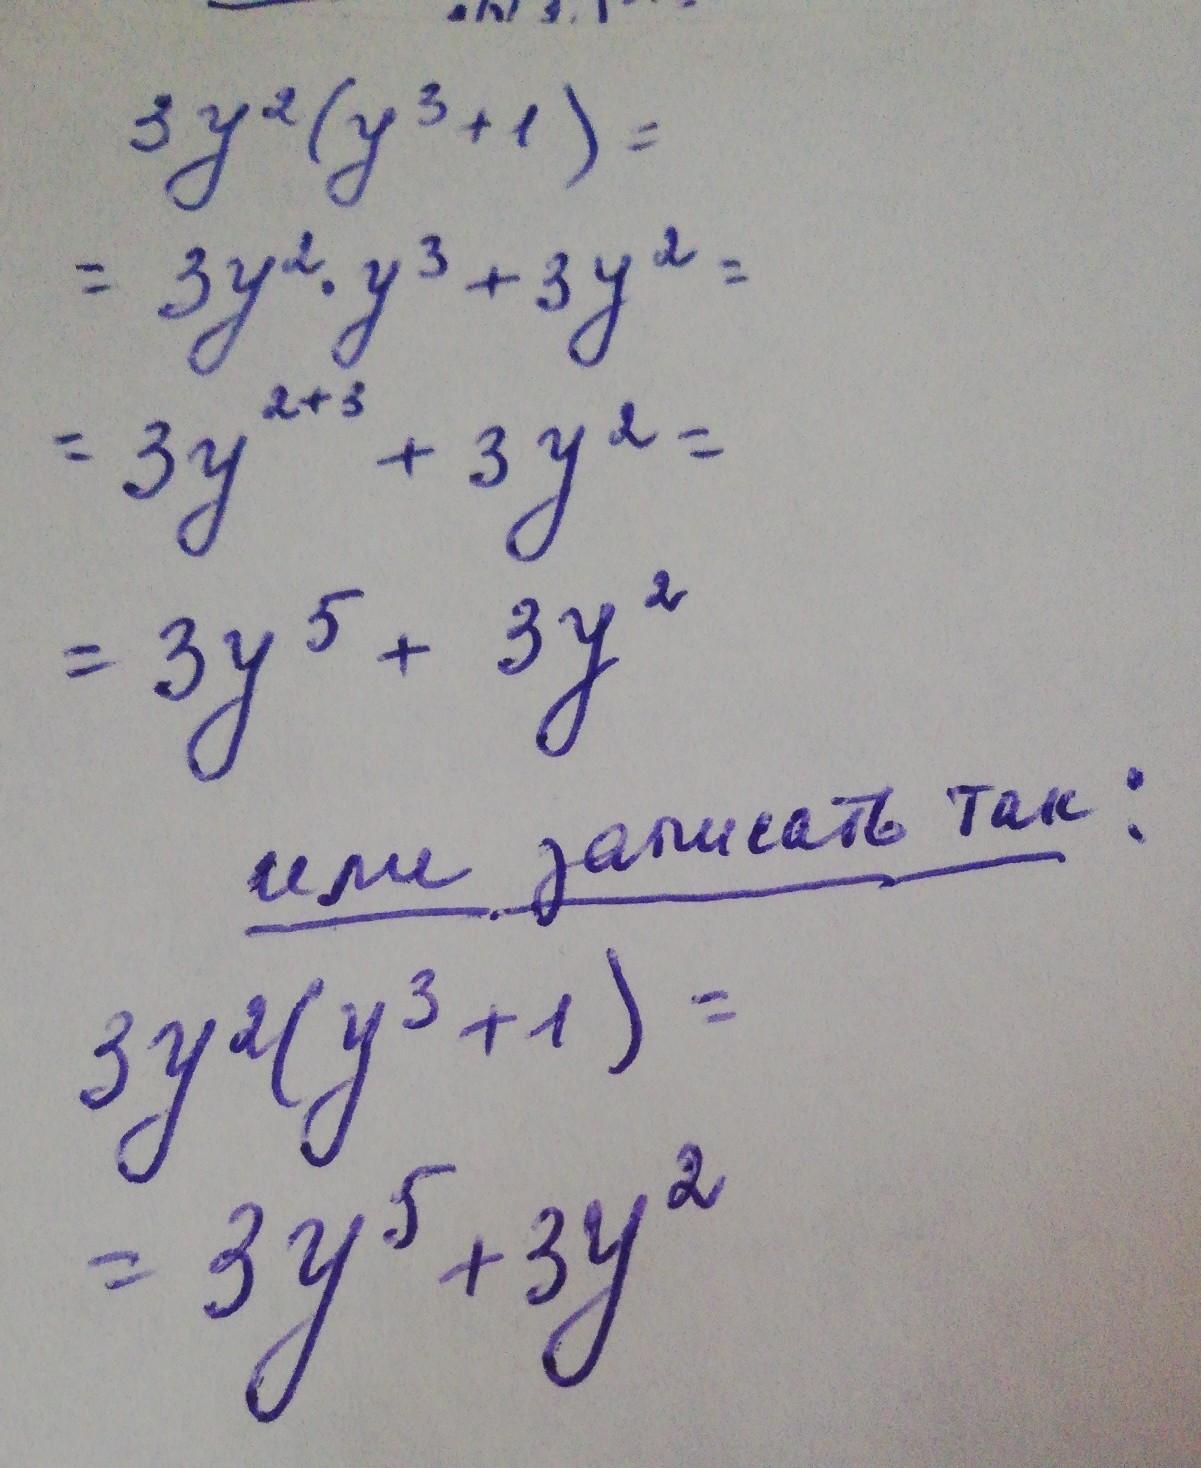 3y²(y³+1)=
= 3y²·y³+3y²=
= 3y²⁺³ + 3y²=
= 3y⁵+ 3y²
или записать так:
3y²(y³+1)=
= 3y⁵+3y²